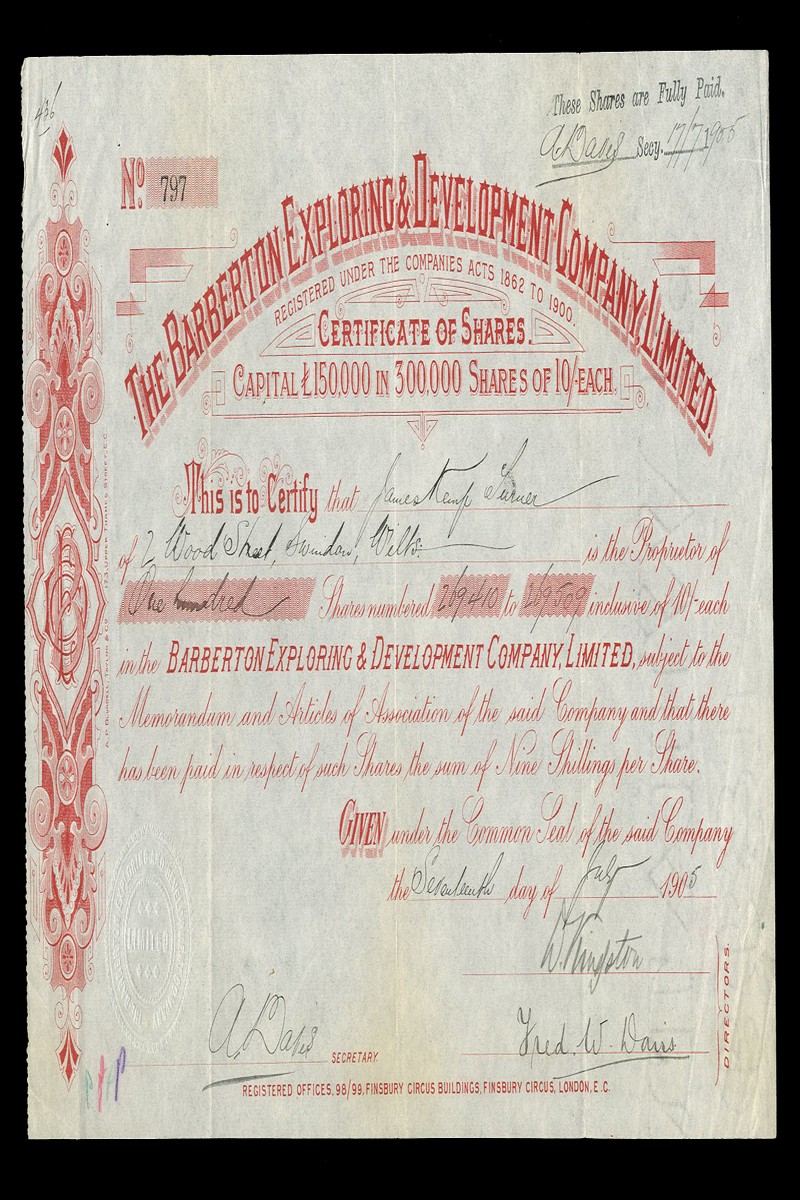 436
These Shares are Fully Paid.
A. Davis Secy. 17/7/1905
No. 797
THE BARBERTON EXPLORING & DEVELOPMENT COMPANY, LIMITED.
REGISTERED UNDER THE COMPANIES ACTS 1862 TO 1900.
CERTIFICATE OF SHARES.
CAPITAL £150,000 IN 300,000 SHARES OF 10/- EACH.
This is to Certify that James Kemp Turner
of 2 Wood Street, Swindon, Wilts. is the Proprietor of
One hundred Shares numbered 269410 to 269509 inclusive of 10/- each
in the BARBERTON EXPLORING & DEVELOPMENT COMPANY, LIMITED, subject to the
Memorandum and Articles of Association of the said Company and that there
has been paid in respect of such Shares the sum of Nine Shillings per Share.
GIVEN under the Common Seal of the said Company
the Seventeenth day of July 1905
W. Kingston
Fred. W. Davis
DIRECTORS.
A. Davis SECRETARY
REGISTERED OFFICES, 98/99, FINSBURY CIRCUS BUILDINGS, FINSBURY CIRCUS, LONDON, E.C.
A. P. BLUNDELL, TAYLOR & CO. 173, UPPER THAMES STREET, E.C.
LIMITED